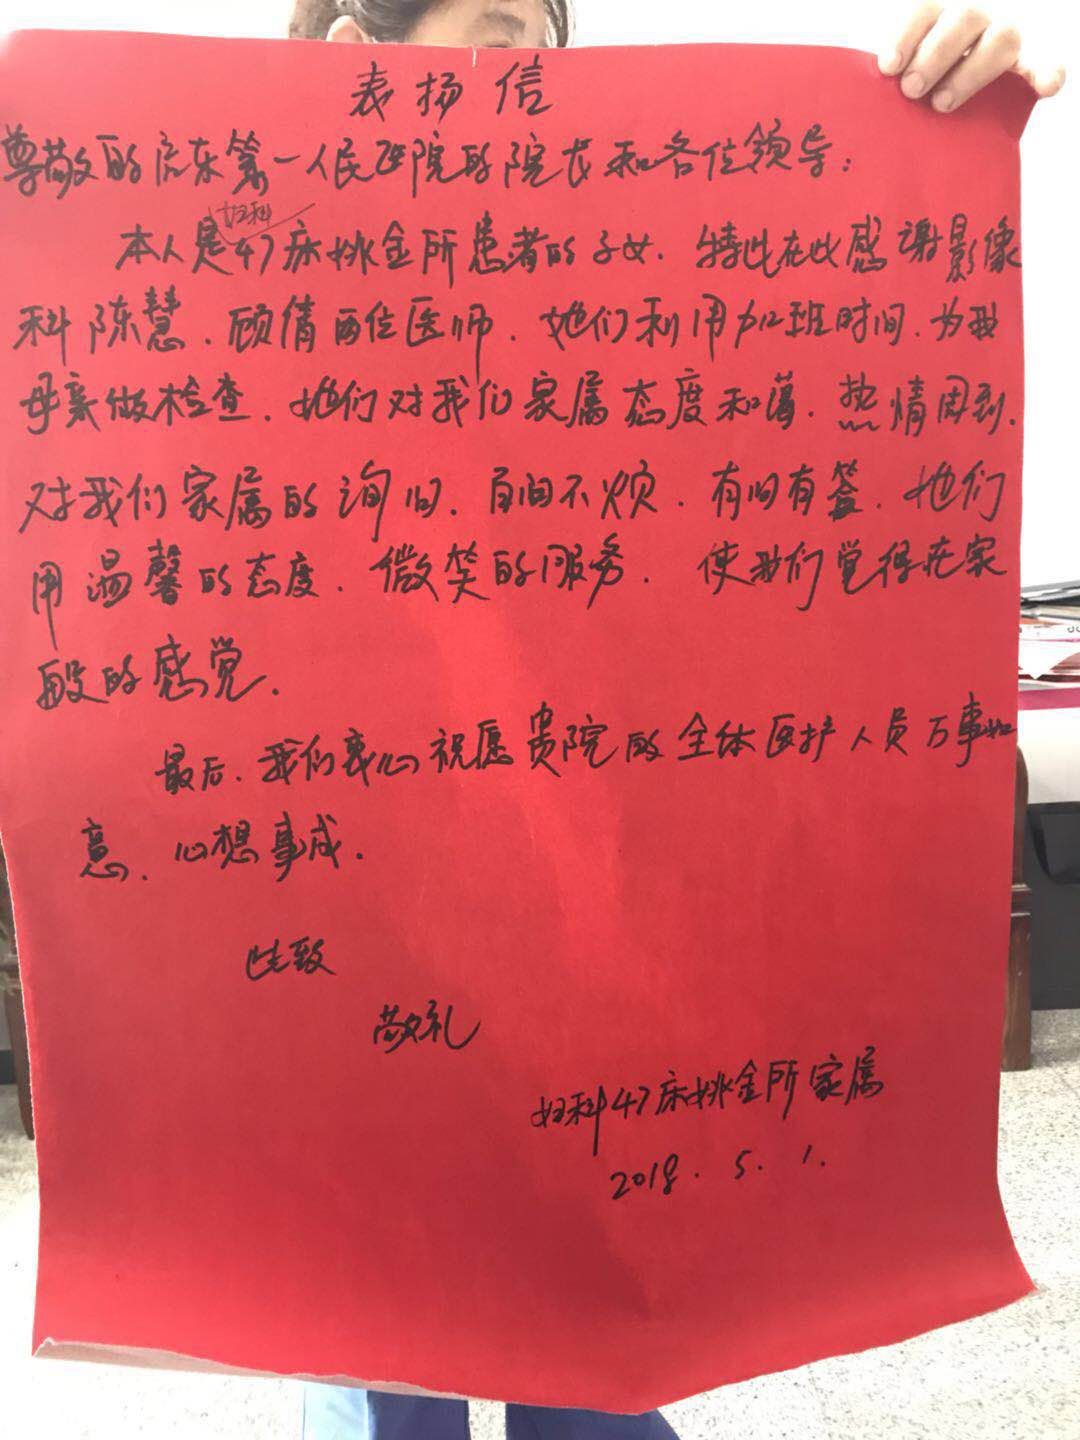 表扬信
尊敬的广东第一人民医院的院长和各位领导:
妇科
本人是47床姚金所患者的子女.特此在此感谢影像
科陈慧.顾倩两位医师.她们利用加班时间.为我
母亲做检查.她们对我们家属态度和蔼.热情周到.
对我们家属的询问.百问不烦.有问有答.她们
用温馨的态度.微笑的服务.使我们觉得在家
一般的感觉.
最后.我们衷心祝愿贵院的全体医护人员万事如
意.心想事成.
此致
敬礼
妇科47床姚金所家属
2018.5.1.